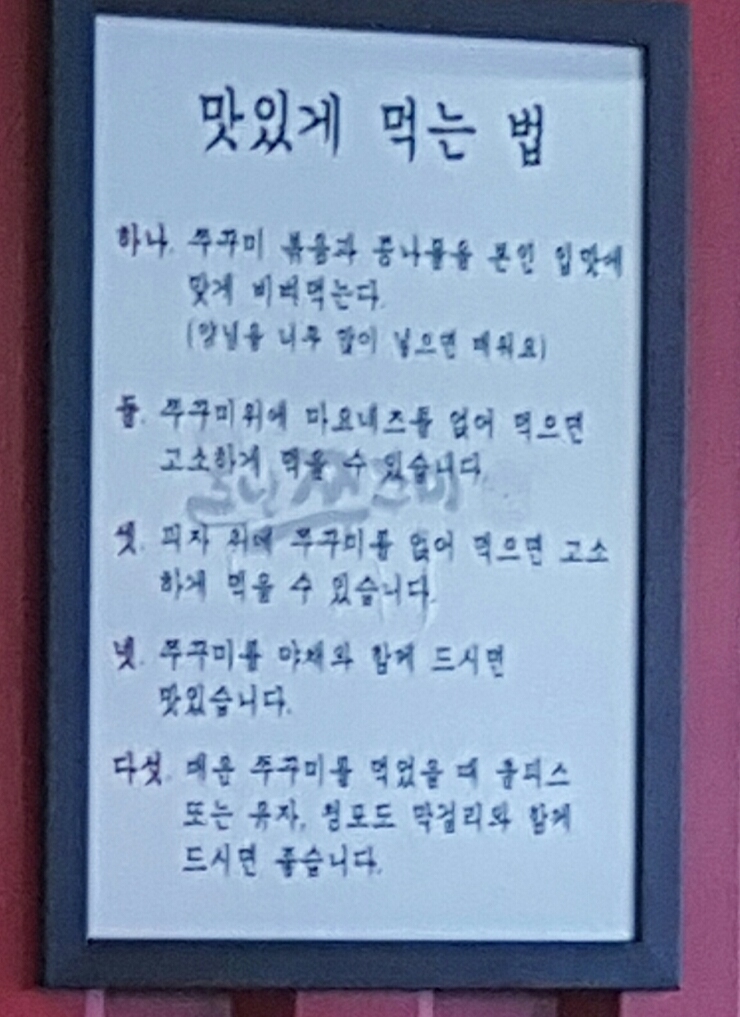 맛있게 먹는 법
하나. 쭈꾸미 볶음과 콩나물을 본인 입맛에
맞게 비벼먹는다.
(양념을 너무 많이 넣으면 매워요)
둘. 쭈꾸미위에 마요네즈를 얹어 먹으면
고소하게 먹을 수 있습니다.
셋. 피자 위에 쭈꾸미를 얹어 먹으면 고소
하게 먹을 수 있습니다.
넷. 쭈꾸미를 야채와 함께 드시면
맛있습니다.
다섯. 매운 쭈꾸미를 먹었을 때 쿨피스
또는 유자, 청포도 막걸리와 함께
드시면 좋습니다.